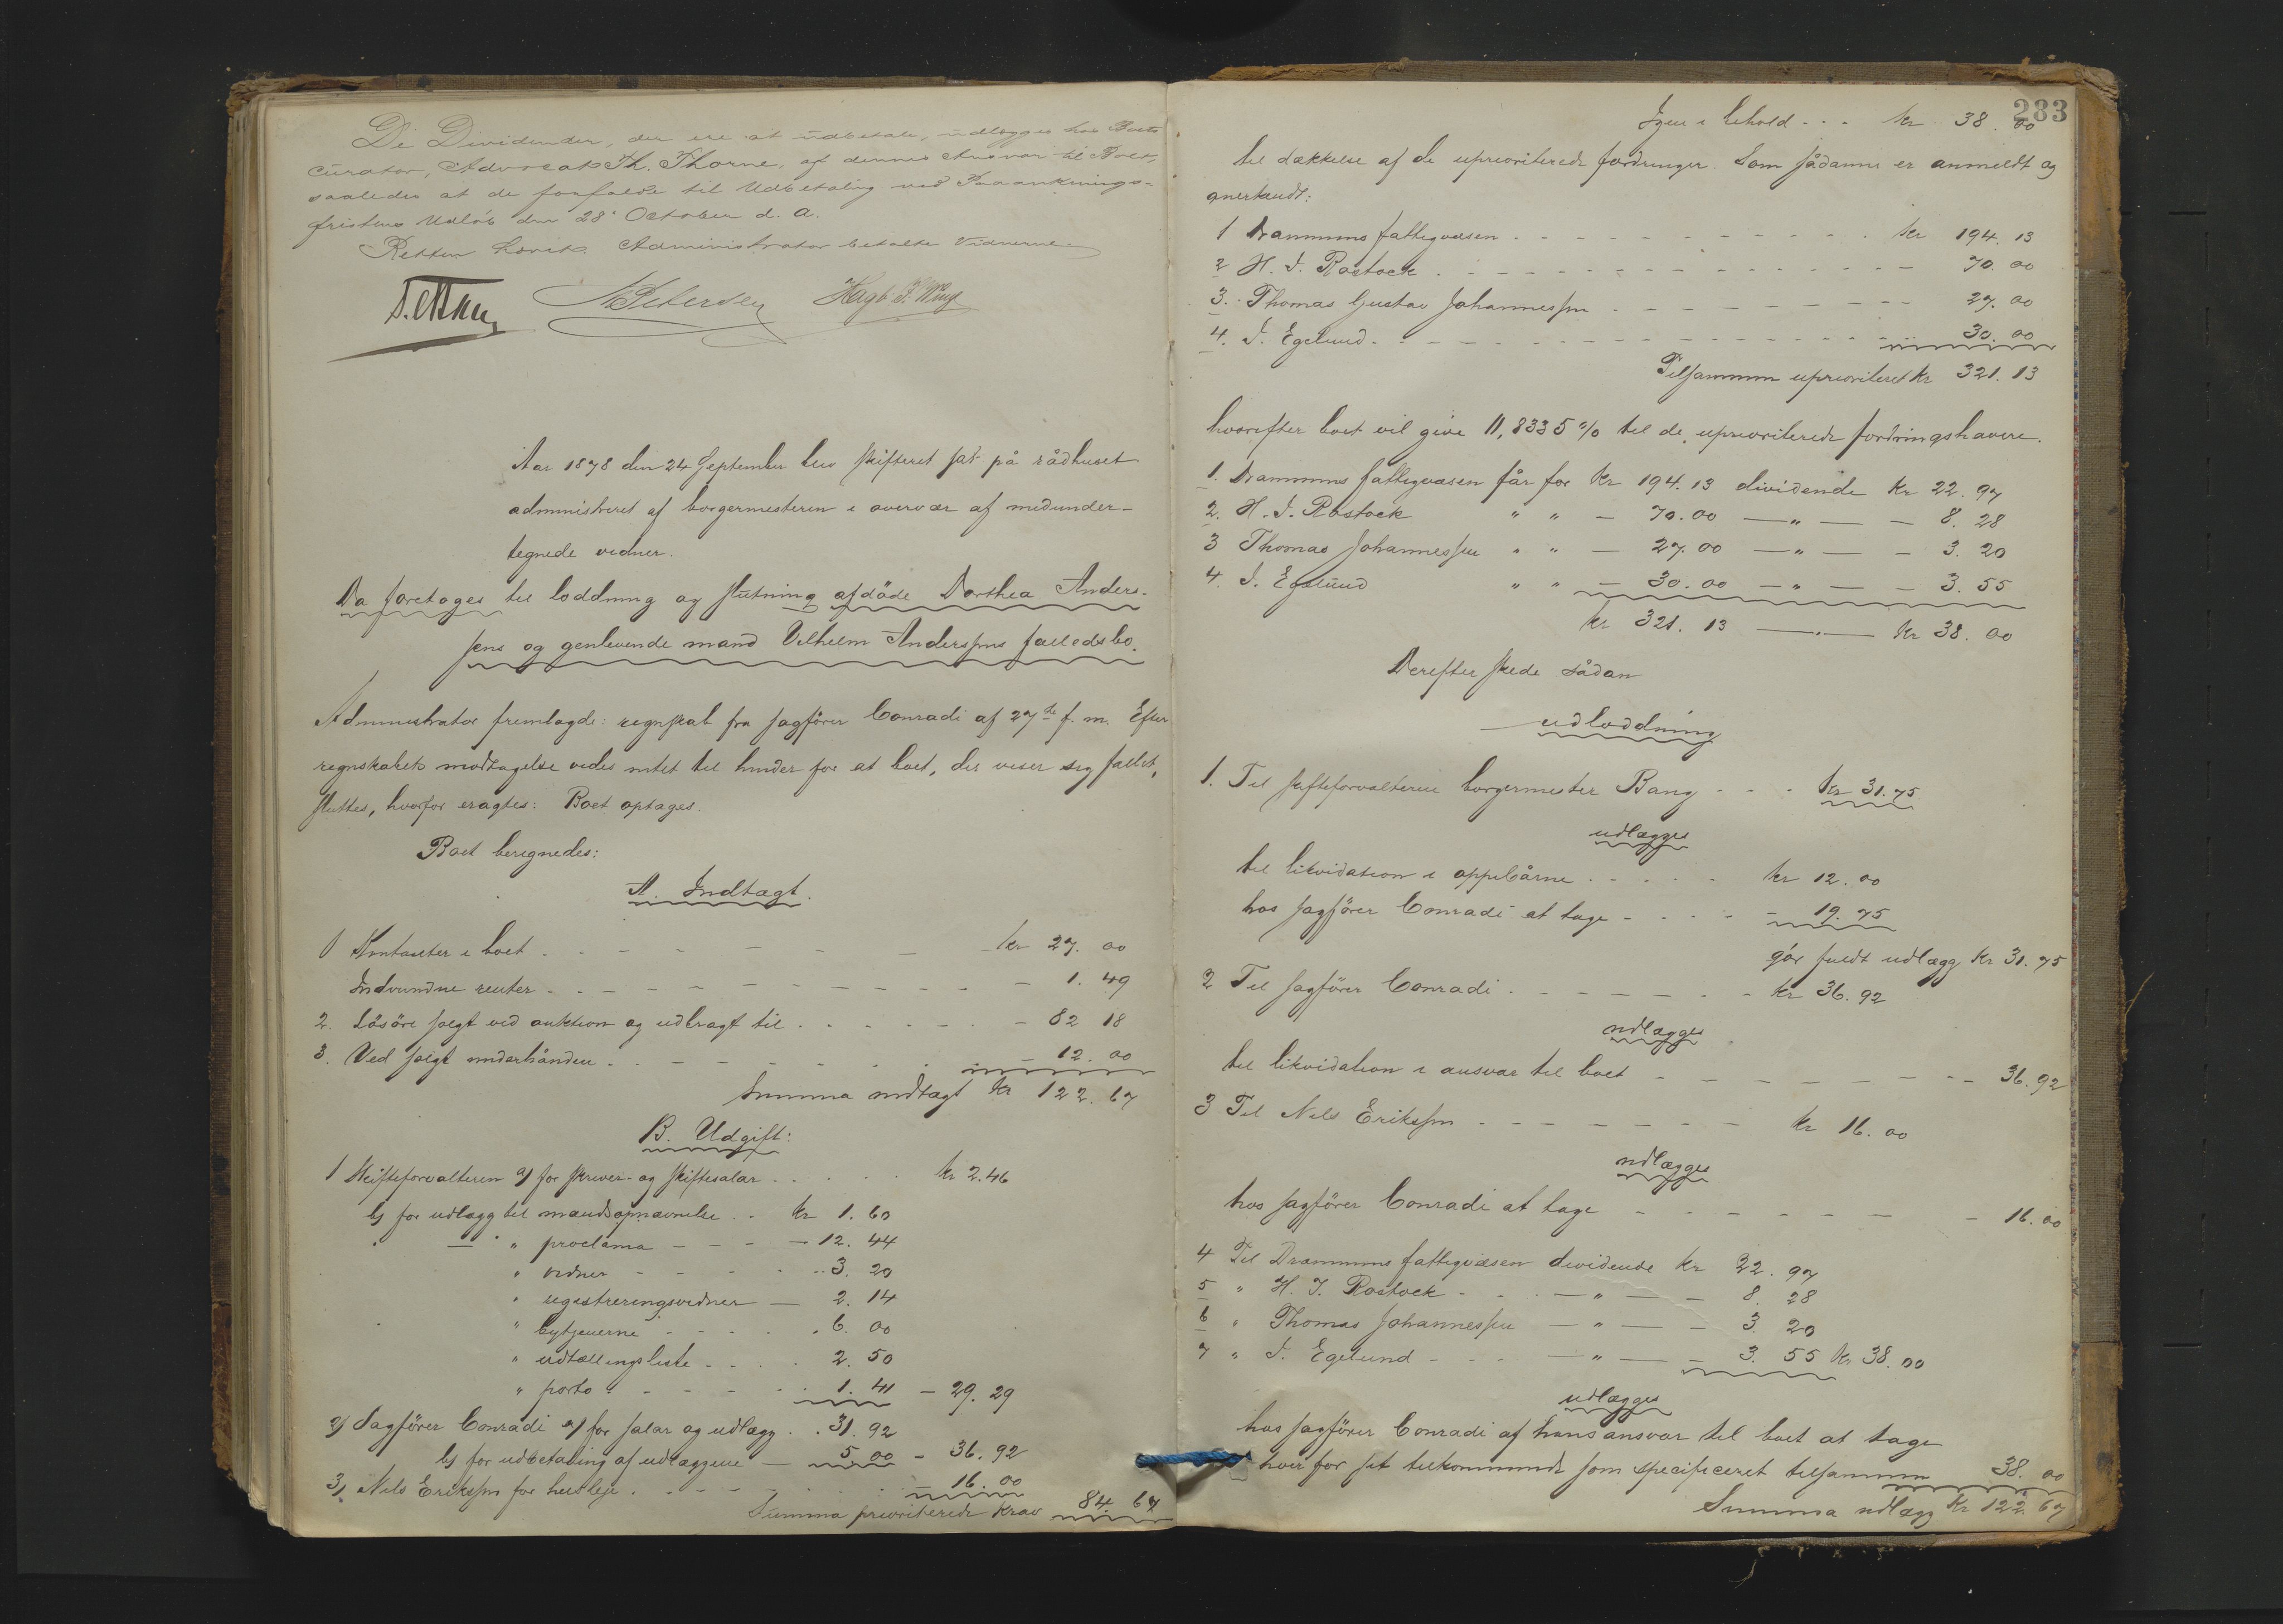 De Dividender, der ere at udbetale, udlægges hos Boets
Curator, Advocat Th. Thorne, af dennes Ansvar til Boet,
saaledes at de forfalde til Udbetaling ved Paaanknings-
fristens Udløb den 28' October d. A.
Retten hævet. Administrator betalte Vidnerne.
N Petersen Hagb. F. Wiig
Aar 1878 den 24 September blev skifteret sat på rådhuset
administreret af borgermesteren i overvær af medunder-
tegnede vidner.
Da foretoges til loddning og slutning afdöde Dorthea Anders-
sens og genlevende mand Vilhelm Anderssens fælledsbo.
Administrator fremlagde: regnskab fra sagförer Conradi af 27de f. m. Efter
regnskabets modtagelse vides intet til hinder for at boet, der viser sig fallit,
sluttes, hvorfor eragtes: Boet optages.
Boet beregnedes:
A. Indtægt.
1 Kontanter i boet - - - kr 27. 00
Indvundne renter - - - 1. 49
2. Lösöre solgt ved auktion og udbragt til - - - 82 18
3. Ved solgt underhånden - - - 12. 00
Summa indtægt kr 122. 67
B. Udgift:
1 Skifteforvalteren a) for skriver- og skiftesalar - - - kr 2.46
b) for udlæg til mandsopnævnelse - - kr 1. 60
— " proclama - - - 12. 44
" vidner - - - 3. 20
" registreringsvidner — 2. 14
" bytjenerne - - - 6. 00
" udtællingsliste - - - 2. 50
" porto - - - 1. 41 - 29. 29
2) Sagförer Conradi a) for salar og udlæg - - 31. 92
b) for udbetaling af udlæggene — 5. 00 - 36. 92
3) Nils Erikssen for husleje - - - 16. 00
Summa prioriterede krav 84. 67
283
Igen i behold - - - kr 38. 00
til dækkelse af de uprioriterede fordringer. Som sådanne er anmeldt og
anerkendt:
1 Drammens fattigvæsen - - - kr 194. 13
2 H. J. Rostock - - - 70. 00
3. Thomas Gustav Johannessen - - - 27. 00
4. J. Egelund - - - 30. 00
Tilsammen uprioriteret kr 321. 13
hvorefter boet vil give 11,8335 % til de uprioriterede fordringshavere.
1. Drammens fattigvæsen får for kr 194.13 dividende kr 22. 97
2. H. J. Rostock " " — 70.00 — " — - 8. 28
3 Thomas Johannessen " " — 27.00 — " — - 3. 20
4. J. Egelund " " — 30.00 — " — - 3. 55
kr 321. 13 — " — kr 38. 00
Derefter skede sådan
udloddning
1. Til skifteforvalteren borgermester Bang - - - kr 31.75
udlægges
til likvidation i oppebårne - - - kr 12. 00
hos sagförer Conradi at tage - - - 19. 75
gör fuldt udlæg kr 31. 75
2 Til sagförer Conradi - - - kr 36. 92
udlægges
til likvidation i ansvar til boet - - - 36. 92
3 Til Nils Erikssen - - - kr 16. 00
udlægges
hos sagförer Conradi at tage - - - 16. 00
4 Til Drammens fattigvæsen dividende kr 22. 97
5 " H. J. Rostock - - — " — - 8. 28
6 " Thomas Johannessen — " — - 3. 20
7 " J. Egelund - - - — " — - 3. 55 kr 38. 00
udlægges
hos sagförer Conradi af hans ansvar til boet at tage
hver for sit tilkommende som specificeret tilsammen 38. 00
Summa udlæg kr 122. 67